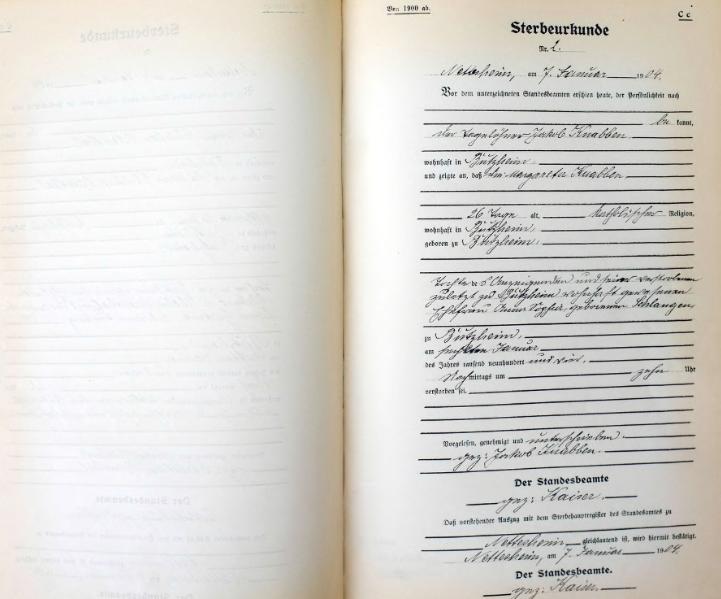 Von 1900 ab.
C c
Sterbeurkunde
Nr. 2.
Nettesheim, am 7. Januar 1904.
Vor dem unterzeichneten Standesbeamten erschien heute, der Persönlichkeit nach
be kannt,
der Tagelöhner Jakob Knabben
wohnhaft in Butzheim
und zeigte an, daß die Margareta Knabben
26 Tage alt, katholischer Religion,
wohnhaft in Butzheim,
geboren zu Butzheim,
Tochter des Anzeigenden und seiner verstorbenen
zuletzt zu Butzheim wohnhaft gewesenen
Ehefrau Anna geborenen Schlangen
zu Butzheim,
am Januar
des Jahres tausend neunhundert und vier,
Nachmittags um zehn Uhr
verstorben sei.
Vorgelesen, genehmigt und unterschrieben
gez: Jakob Knabben.
Der Standesbeamte
gez: Kaiser.
Daß vorstehender Auszug mit dem Sterbehauptregister des Standesamtes zu
Nettesheim gleichlautend ist, wird hiermit bestätigt.
Nettesheim, am 7. Januar 1904.
Der Standesbeamte.
gez: Kaiser.